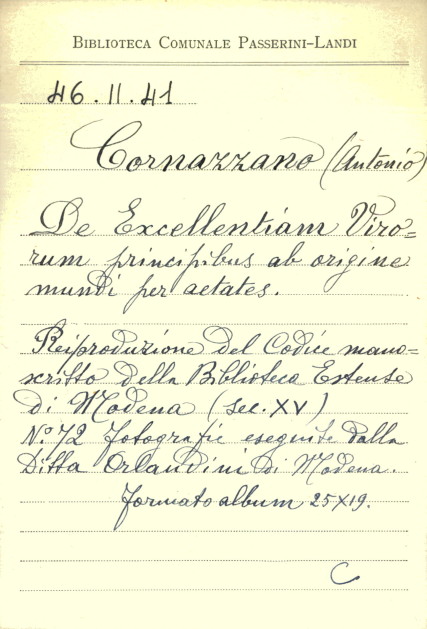 BIBLIOTECA COMUNALE PASSERINI-LANDI
46.II.41
Cornazzano (Antonio)
De Excellentiam Viro=
rum principibus ab origine
mundi per aetates.
Reiproduzione del Codice mano=
scritto della Biblioteca Estense
di Modena (sec. XV)
N.° 72 fotografie eseguite dalla
Ditta Orlandini di Modena.
formato album 25X19.
C